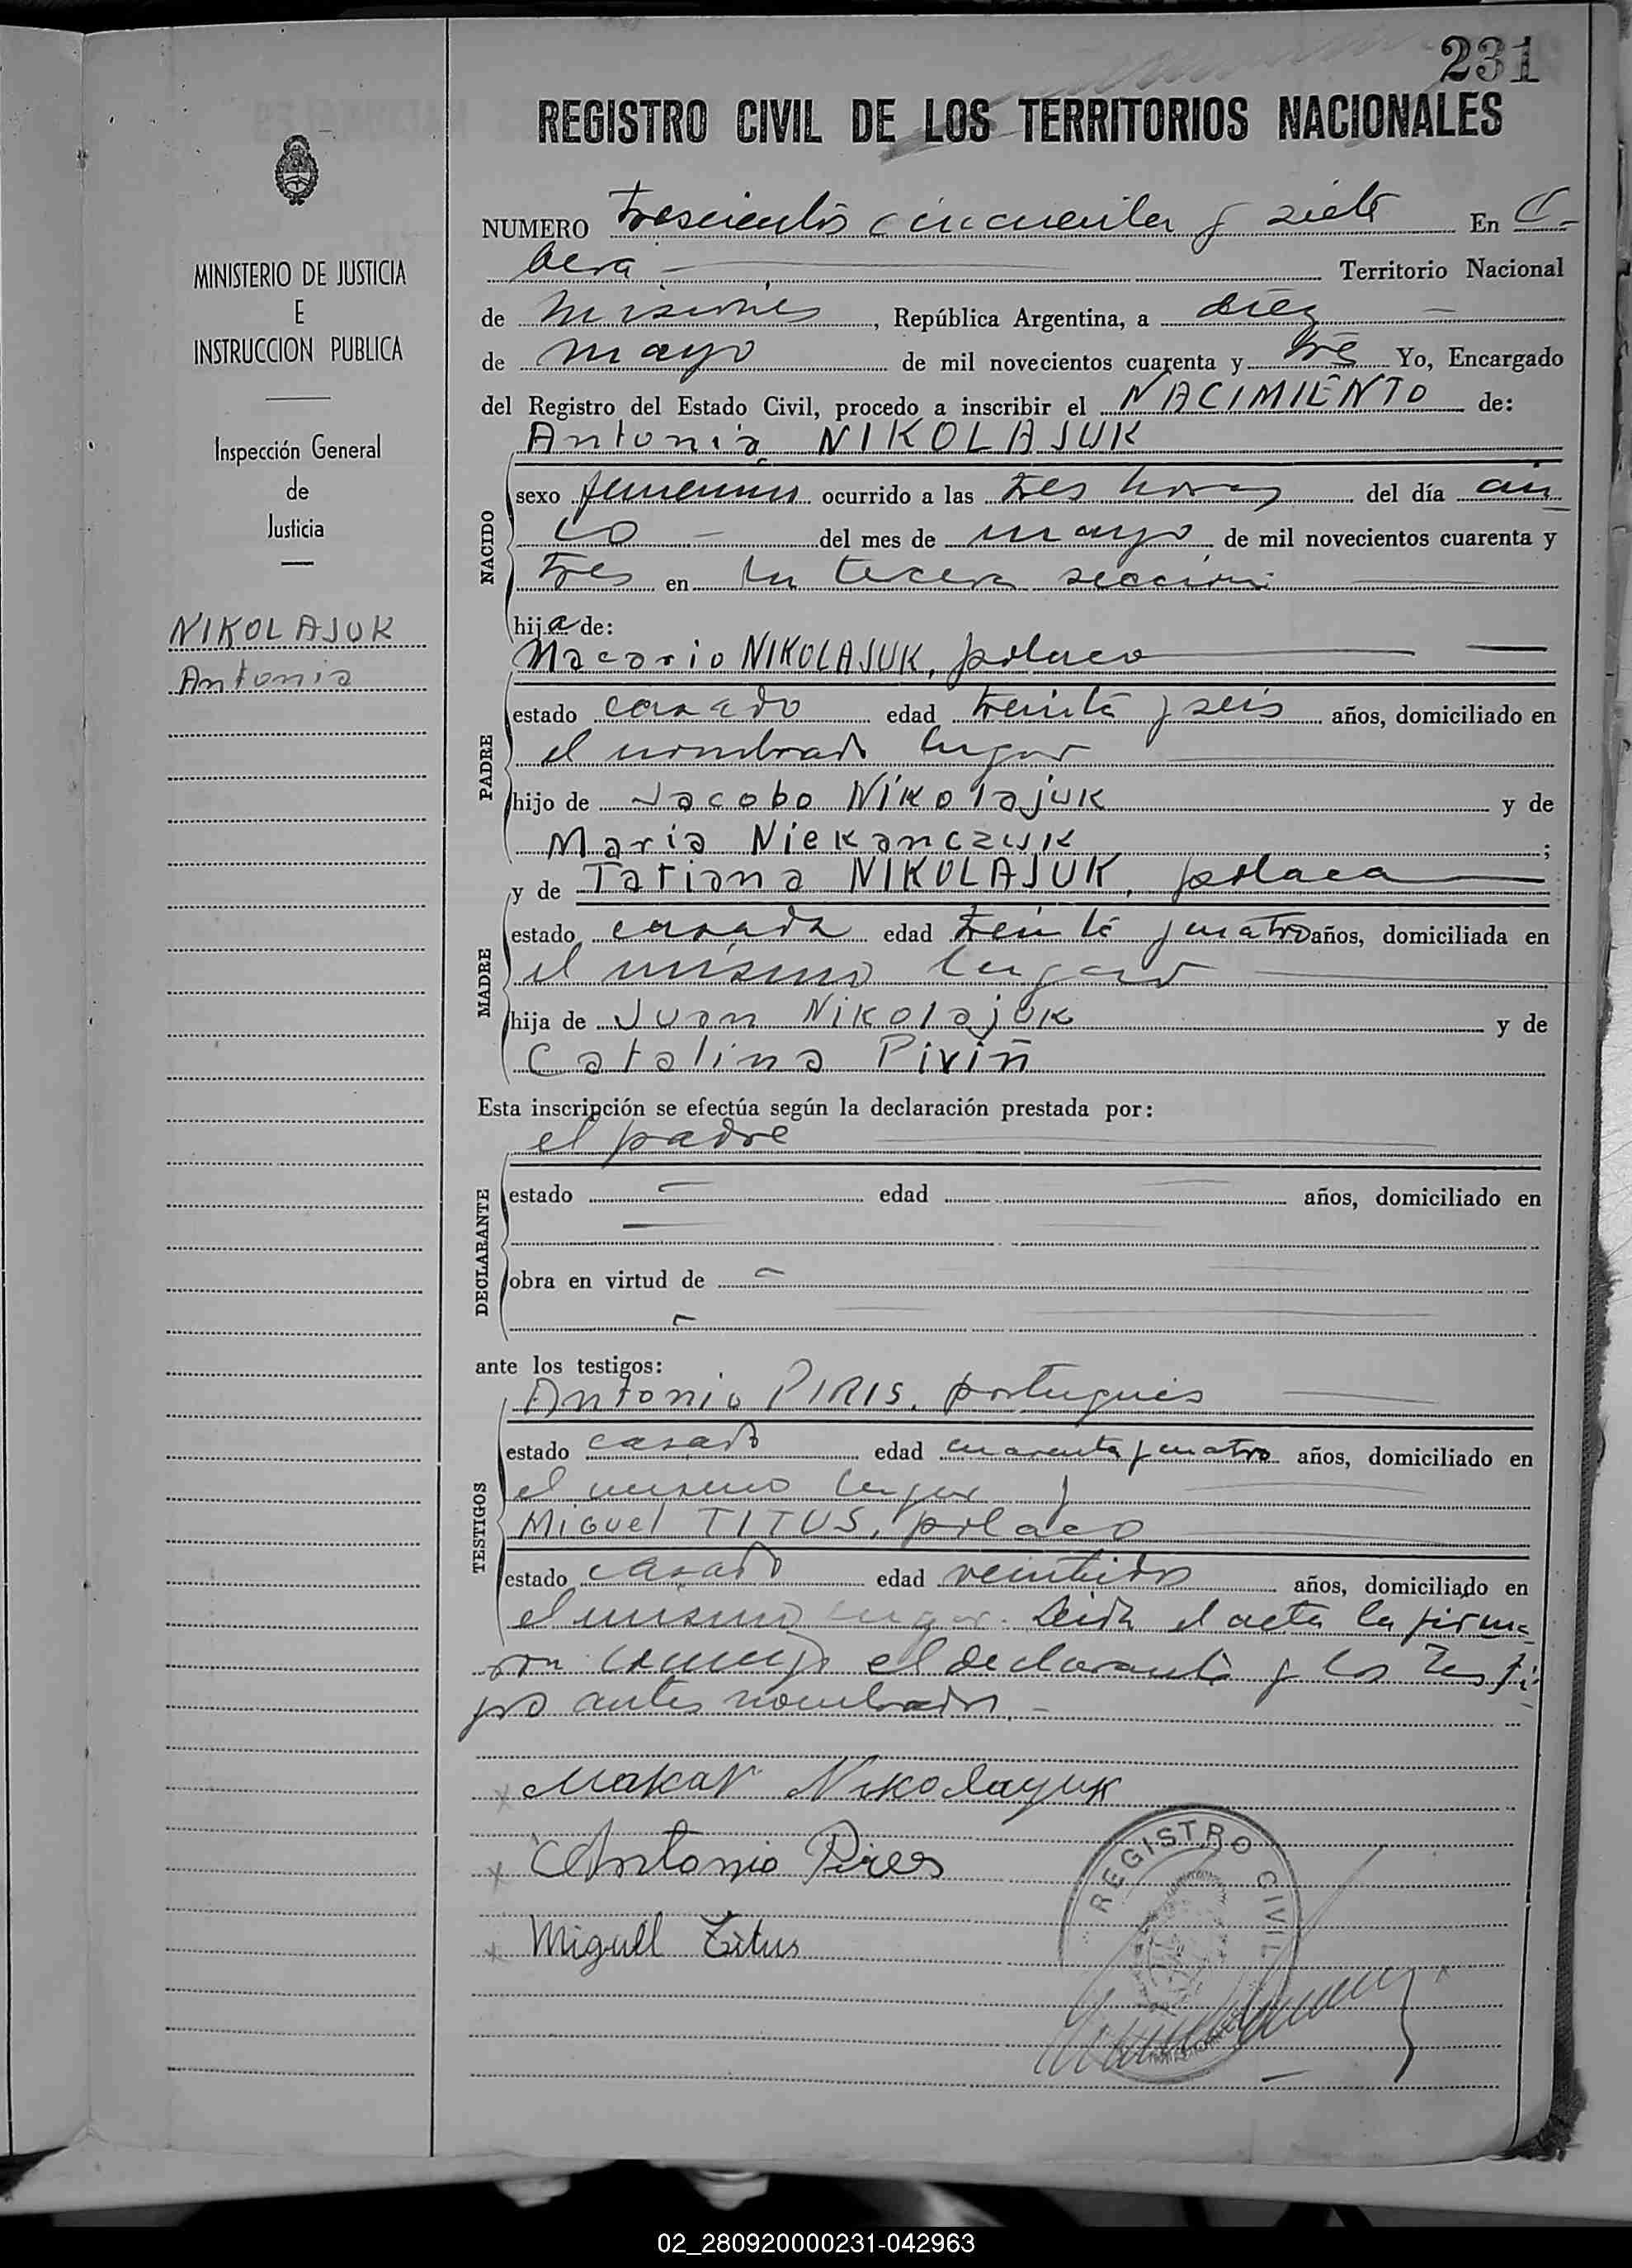 231
REGISTRO CIVIL DE LOS TERRITORIOS NACIONALES
MINISTERIO DE JUSTICIA
E
INSTRUCCION PUBLICA
Inspección General
de
Justicia
NIKOLAJUK
Antonia
NUMERO trescientos cincuenta y siete En O-
bera Territorio Nacional
de Misiones, República Argentina, a diez
de mayo de mil novecientos cuarenta y tres Yo, Encargado
del Registro del Estado Civil, procedo a inscribir el NACIMIENTO de:
Antonia NIKOLAJUK
NACIDO
sexo femenino ocurrido a las tres horas del día cin
co del mes de mayo de mil novecientos cuarenta y
tres en la tercera sección
hija de:
Macario NIKOLAJUK, polaco
PADRE
estado casado edad treinta y seis años, domiciliado en
el nombrado lugar
hijo de Jacobo Nikolajuk y de
Maria Niekanczuk;
y de Tatiana NIKOLAJUK, polaca
MADRE
estado casada edad treinta y cuatro años, domiciliada en
el mismo lugar
hija de Juan Nikolajuk y de
Catalina Piviñ
Esta inscripción se efectúa según la declaración prestada por:
el padre
DECLARANTE
estado edad años, domiciliado en
obra en virtud de
ante los testigos:
Antonio PIRIS, portugués
TESTIGOS
estado casado edad cuarenta y cuatro años, domiciliado en
el mismo lugar y
Miguel TITUS, polaco
estado casado edad veintidos años, domiciliado en
el mismo lugar. Leida el acta la firma
ron conmigo el declarante y los testi
gos antes nombrados.-
Makar Nikolayuk
Antonio Pires
Miguel Titus
REGISTRO CIVIL
MISIONES
02_280920000231-042963